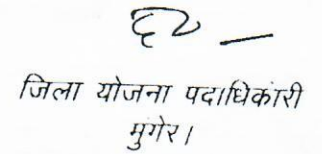 जिला योजना पदाधिकारी
मुंगेर।